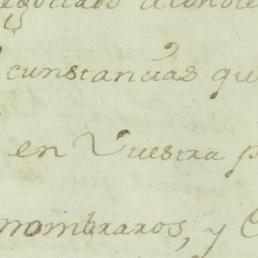 cunstancias qu
en Vuestra p
nombraros, y C